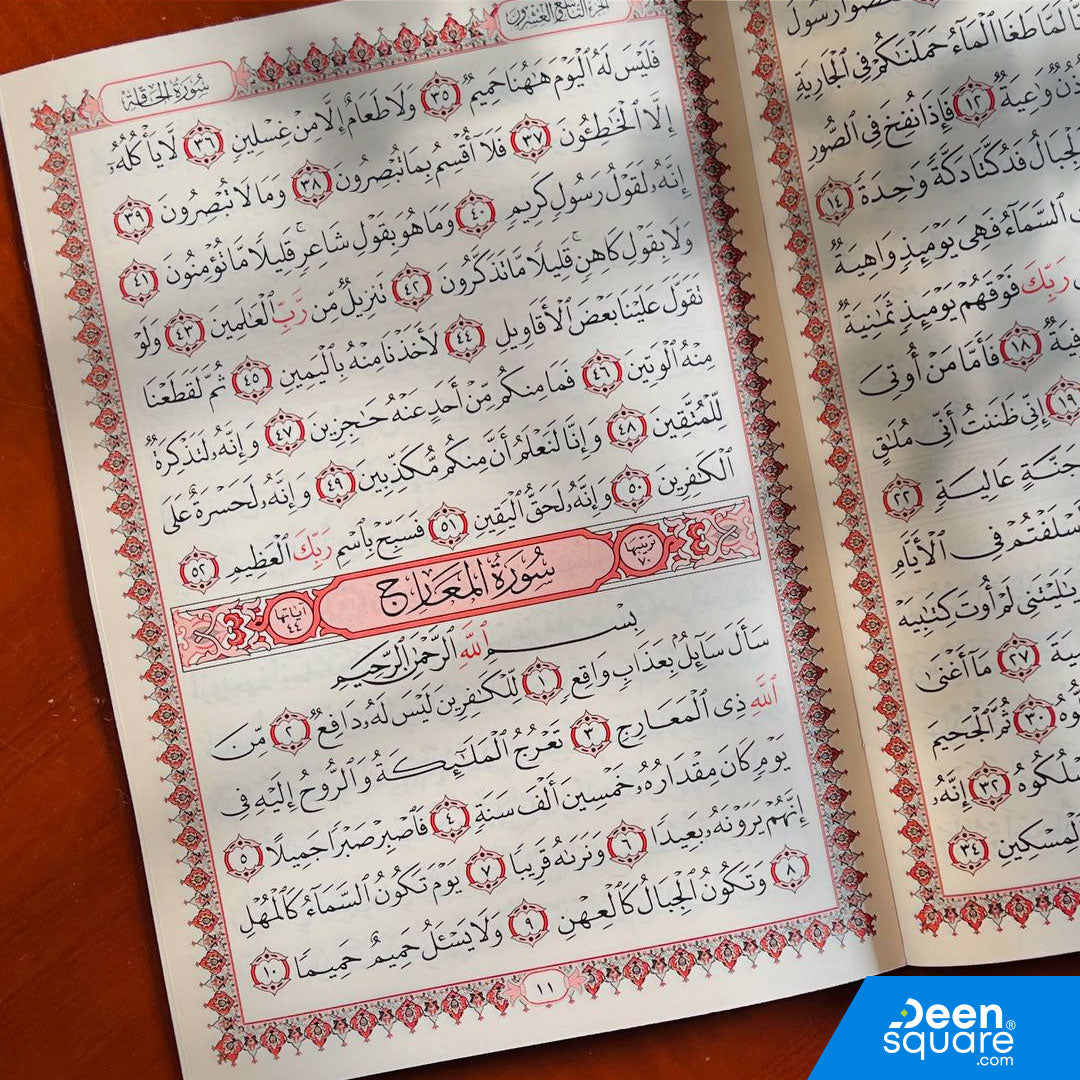 ـعَصَوۡا۟ رَسُولَ
لَمَّا طَغَا ٱلۡمَآءُ حَمَلۡنَٰكُمۡ فِى ٱلۡجَارِيَةِ
وَٰعِيَةٌ ١٢ فَإِذَا نُفِخَ فِى ٱلصُّورِ
فَدُكَّتَا دَكَّةً وَٰحِدَةً ١٤
ٱلسَّمَآءُ فَهِىَ يَوۡمَئِذٍ وَاهِيَةٌ
رَبِّكَ فَوۡقَهُمۡ يَوۡمَئِذٍ ثَمَٰنِيَةٌ
ـفِيَةٌ ١٨ فَأَمَّا مَنۡ أُوتِىَ
١٩ إِنِّى ظَنَنتُ أَنِّى مُلَٰقٍ
جَنَّةٍ عَالِيَةٍ ٢٢
أَسۡلَفۡتُمۡ فِى ٱلۡأَيَّامِ
يَٰلَيۡتَنِى لَمۡ أُوتَ كِتَٰبِيَهۡ
ـيَةَ ٢٧ مَآ أَغۡنَىٰ
ـوهُ ٣٠ ثُمَّ ٱلۡجَحِيمَ
ـسۡلُكُوهُ ٣٢ إِنَّهُۥ
ٱلۡمِسۡكِينِ ٣٤
الجزء التاسع والعشرون
سُورَةُ الحَاقَّة
فَلَيۡسَ لَهُ ٱلۡيَوۡمَ هَٰهُنَا حَمِيمٌ ٣٥ وَلَا طَعَامٌ إِلَّا مِنۡ غِسۡلِينٍ ٣٦ لَّا يَأۡكُلُهُۥٓ
إِلَّا ٱلۡخَٰطِـُٔونَ ٣٧ فَلَآ أُقۡسِمُ بِمَا تُبۡصِرُونَ ٣٨ وَمَا لَا تُبۡصِرُونَ ٣٩
إِنَّهُۥ لَقَوۡلُ رَسُولٍ كَرِيمٍ ٤٠ وَمَا هُوَ بِقَوۡلِ شَاعِرٍ ۚ قَلِيلًا مَّا تُؤۡمِنُونَ ٤١
وَلَا بِقَوۡلِ كَاهِنٍ ۚ قَلِيلًا مَّا تَذَكَّرُونَ ٤٢ تَنزِيلٌ مِّن رَّبِّ ٱلۡعَٰلَمِينَ ٤٣ وَلَوۡ
تَقَوَّلَ عَلَيۡنَا بَعۡضَ ٱلۡأَقَاوِيلِ ٤٤ لَأَخَذۡنَا مِنۡهُ بِٱلۡيَمِينِ ٤٥ ثُمَّ لَقَطَعۡنَا
مِنۡهُ ٱلۡوَتِينَ ٤٦ فَمَا مِنكُم مِّنۡ أَحَدٍ عَنۡهُ حَٰجِزِينَ ٤٧ وَإِنَّهُۥ لَتَذۡكِرَةٌ
لِّلۡمُتَّقِينَ ٤٨ وَإِنَّا لَنَعۡلَمُ أَنَّ مِنكُم مُّكَذِّبِينَ ٤٩ وَإِنَّهُۥ لَحَسۡرَةٌ عَلَى
ٱلۡكَٰفِرِينَ ٥٠ وَإِنَّهُۥ لَحَقُّ ٱلۡيَقِينِ ٥١ فَسَبِّحۡ بِٱسۡمِ رَبِّكَ ٱلۡعَظِيمِ ٥٢
ترتيبها ٧٠ سُورَةُ المَعَارِج آياتها ٤٤
بِسۡمِ ٱللَّهِ ٱلرَّحۡمَٰنِ ٱلرَّحِيمِ
سَأَلَ سَآئِلٌۢ بِعَذَابٍ وَاقِعٍ ١ لِّلۡكَٰفِرِينَ لَيۡسَ لَهُۥ دَافِعٌ ٢ مِّنَ
ٱللَّهِ ذِى ٱلۡمَعَارِجِ ٣ تَعۡرُجُ ٱلۡمَلَٰٓئِكَةُ وَٱلرُّوحُ إِلَيۡهِ فِى
يَوۡمٍ كَانَ مِقۡدَارُهُۥ خَمۡسِينَ أَلۡفَ سَنَةٍ ٤ فَٱصۡبِرۡ صَبۡرًا جَمِيلًا ٥
إِنَّهُمۡ يَرَوۡنَهُۥ بَعِيدًا ٦ وَنَرَىٰهُ قَرِيبًا ٧ يَوۡمَ تَكُونُ ٱلسَّمَآءُ كَٱلۡمُهۡلِ
٨ وَتَكُونُ ٱلۡجِبَالُ كَٱلۡعِهۡنِ ٩ وَلَا يَسۡـَٔلُ حَمِيمٌ حَمِيمًا ١٠
١١
Deen
square®
.com